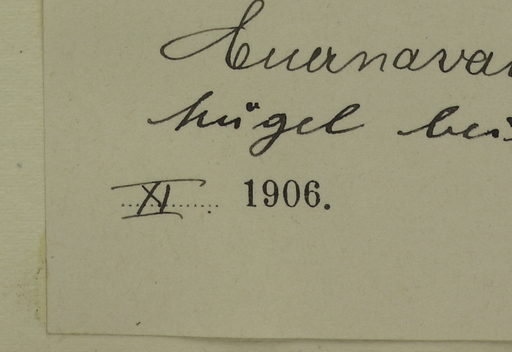 Cuernavac
hügel bei
XI 1906.